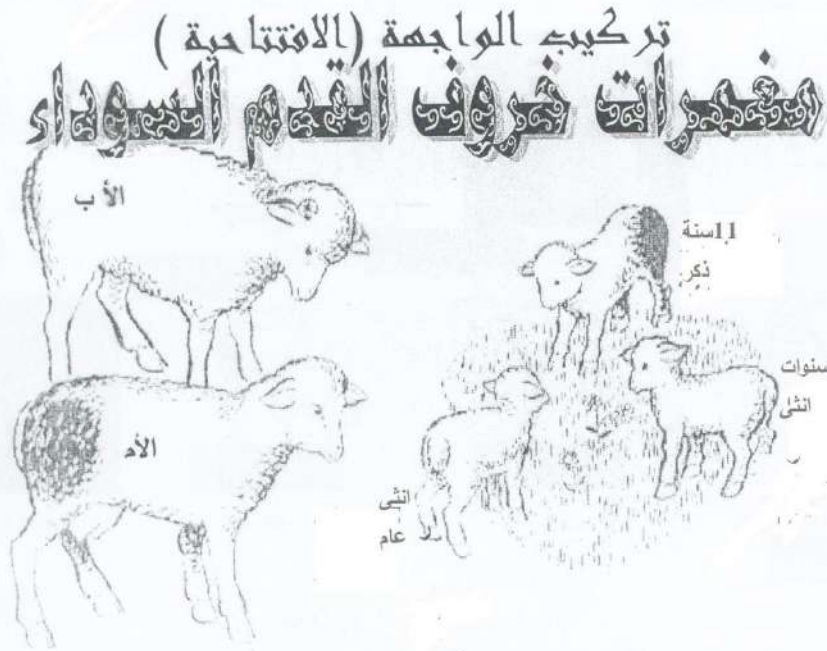 تركيب الواجهة (الافتتاحية )
مغمرات خروف القدم السوداء
الأب
11سنة
ذكر
سنوات
انثى
الأم
انثى
عام